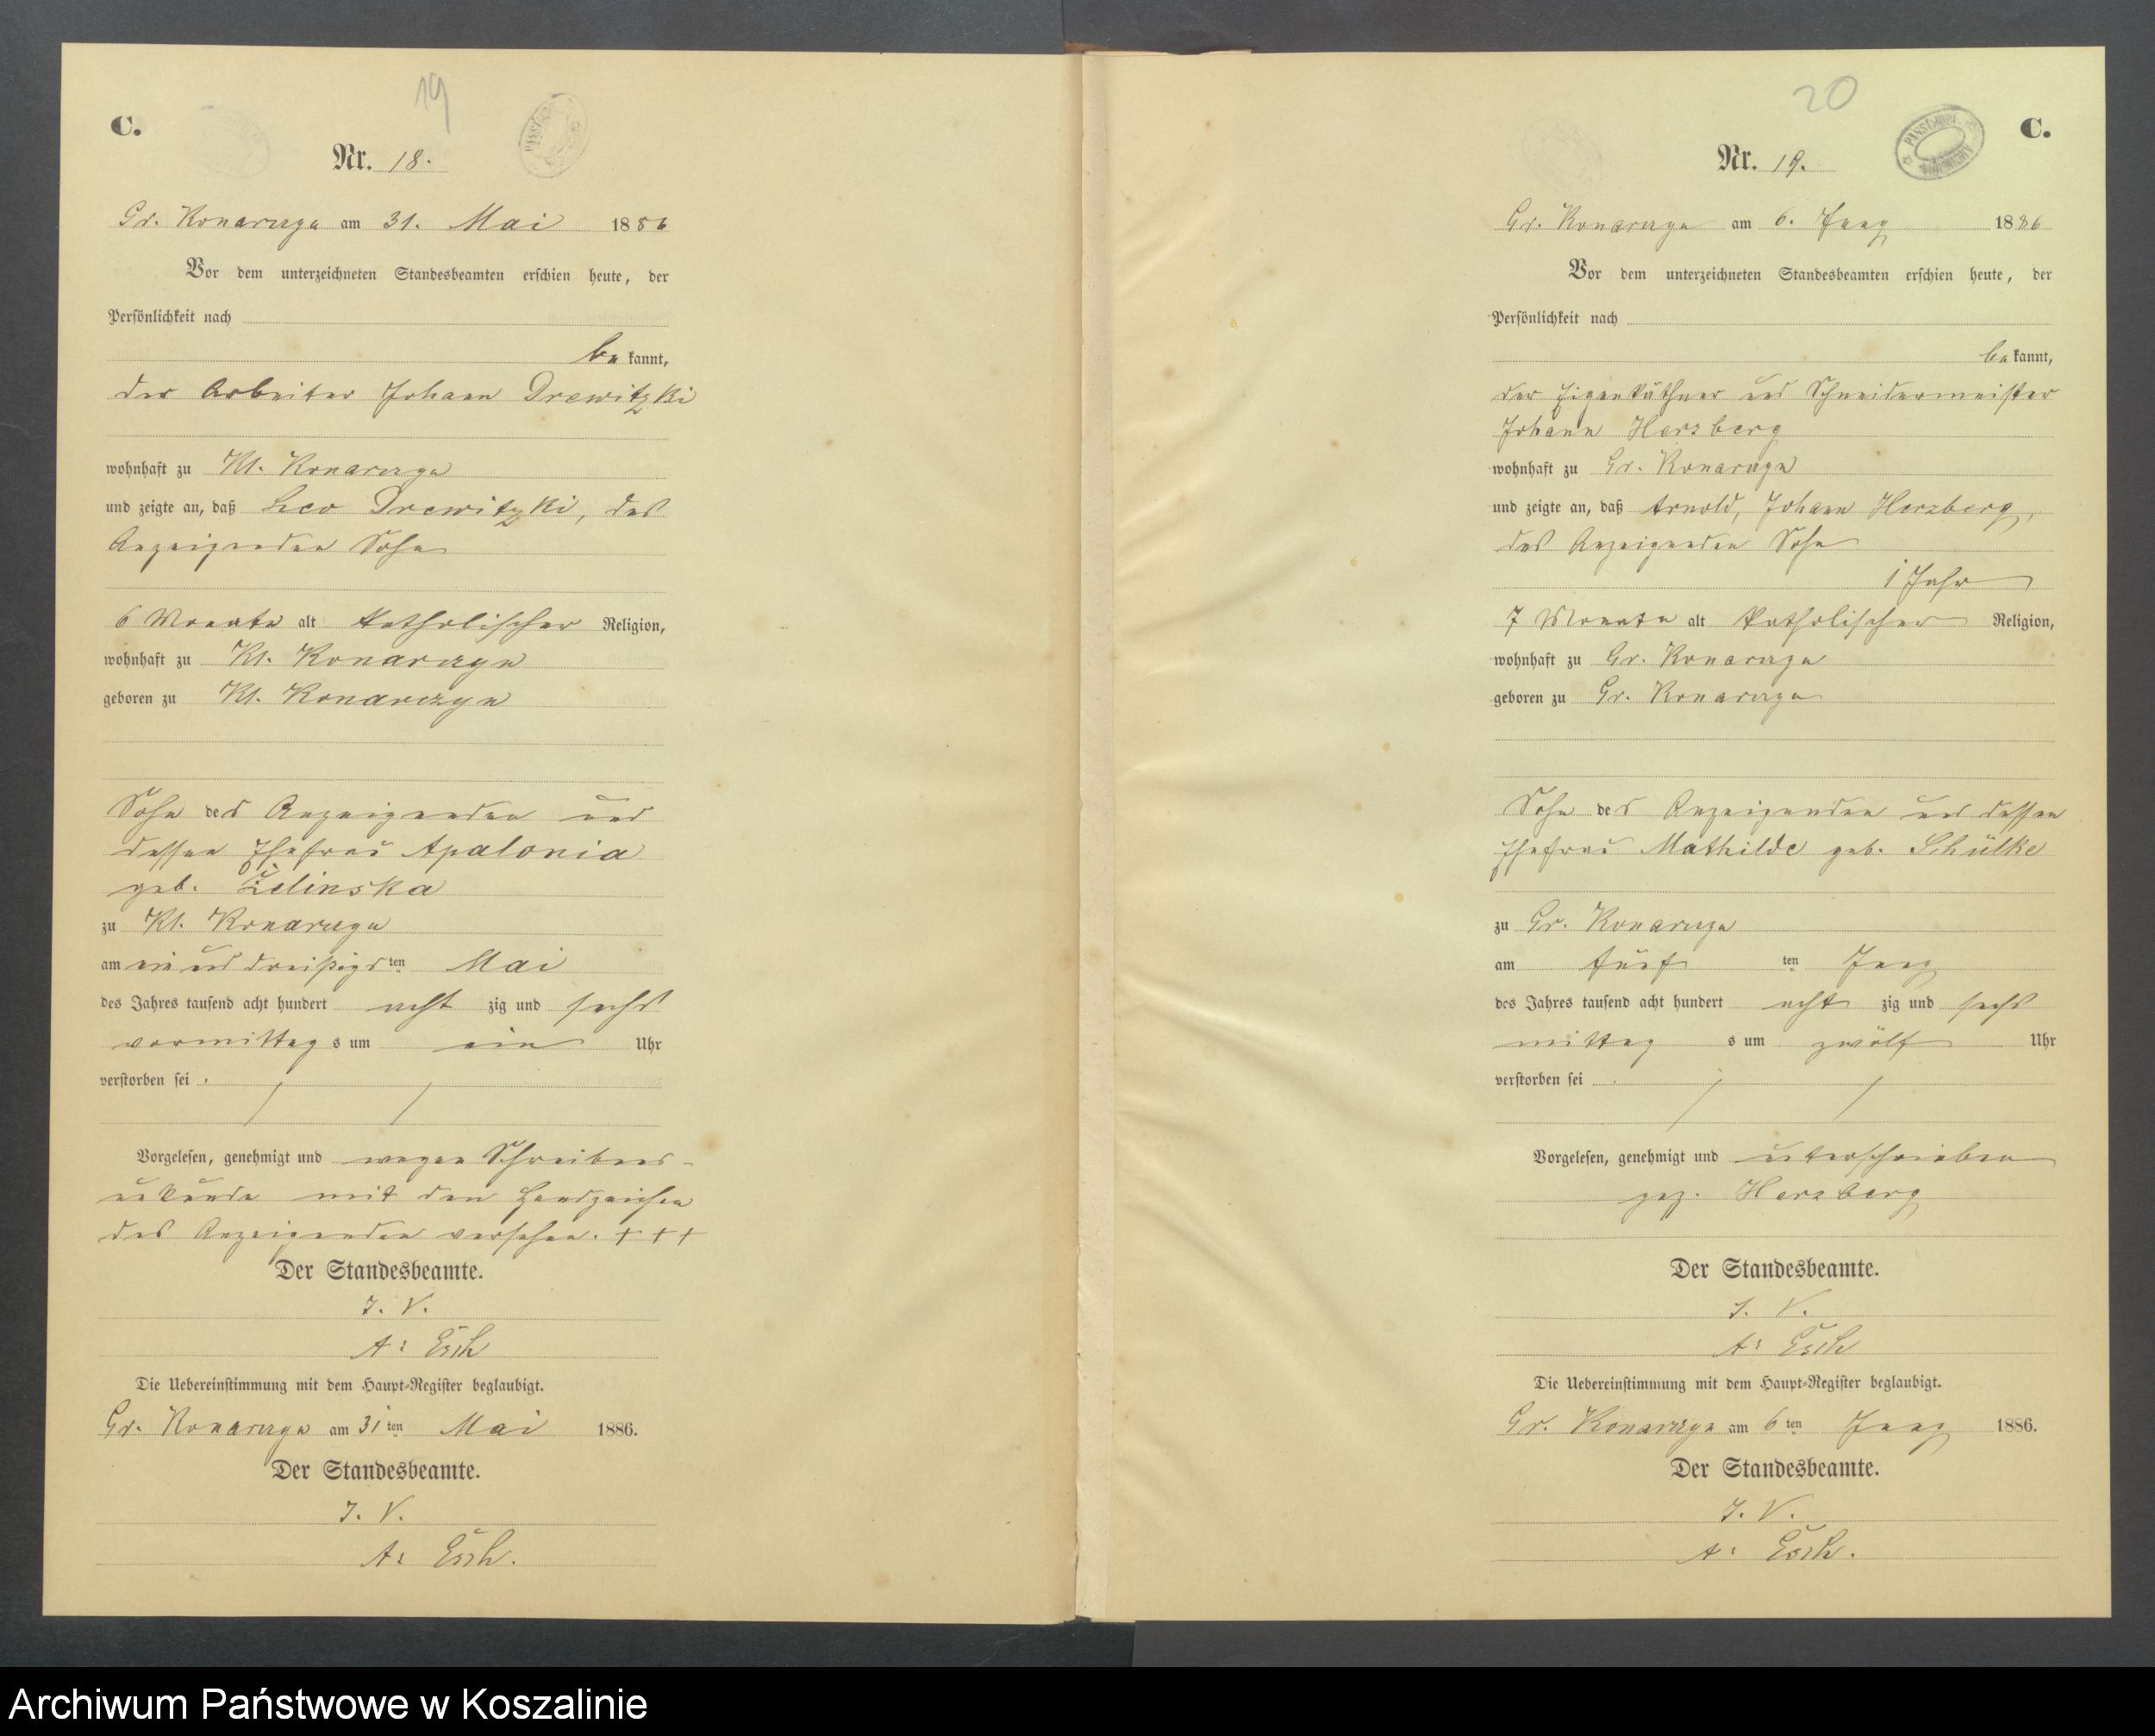 19
C.
Nr. 18.
Gr. Konarczyn am 31. Mai 1886
Vor dem unterzeichneten Standesbeamten erschien heute, der
Persönlichkeit nach
be kannt,
der Arbeiter Johann Drewitzki
wohnhaft zu Kl. Konarczyn
und zeigte an, daß Leo Drewitzki, des
Anzeigenden Sohn
6 Monate alt katholischer Religion,
wohnhaft zu Kl. Konarczyn
geboren zu Kl. Konarczyn
Sohn des Anzeigenden und
dessen Ehefrau Apalonia
geb. Zelinska
zu Kl. Konarczyn
am ein und dreißigsten Mai
des Jahres tausend acht hundert acht zig und sechs
vormittag s um ein Uhr
verstorben sei
Vorgelesen, genehmigt und wegen Schreibens-
unkunde mit dem Handzeichen
des Anzeigenden versehen. +++
Der Standesbeamte.
I. V.
A: Esch
Die Uebereinstimmung mit dem Haupt-Register beglaubigt.
Gr. Konarczyn am 31 ten Mai 1886.
Der Standesbeamte.
I. V.
A: Esch.
20
C.
Nr. 19.
Gr. Konarczyn am 6. Juny 1886
Vor dem unterzeichneten Standesbeamten erschien heute, der
Persönlichkeit nach
be kannt,
der Eigenkäthner und Schneidermeister
Johann Herzberg
wohnhaft zu Gr. Konarczyn
und zeigte an, daß Arnold, Johann Herzberg,
des Anzeigenden Sohn
1 Jahr
7 Monate alt katholischer Religion,
wohnhaft zu Gr. Konarczyn
geboren zu Gr. Konarczyn
Sohn des Anzeigenden und dessen
Ehefrau Mathilde geb. Schülke
zu Gr. Konarczyn
am fünf ten Juny
des Jahres tausend acht hundert acht zig und sechs
mittag s um zwölf Uhr
verstorben sei
Vorgelesen, genehmigt und unterschrieben
gez. Herzberg
Der Standesbeamte.
I. V.
A: Esch
Die Uebereinstimmung mit dem Haupt-Register beglaubigt.
Gr. Konarczyn am 6 ten Juny 1886.
Der Standesbeamte.
I. V.
A: Esch.
Archiwum Państwowe w Koszalinie